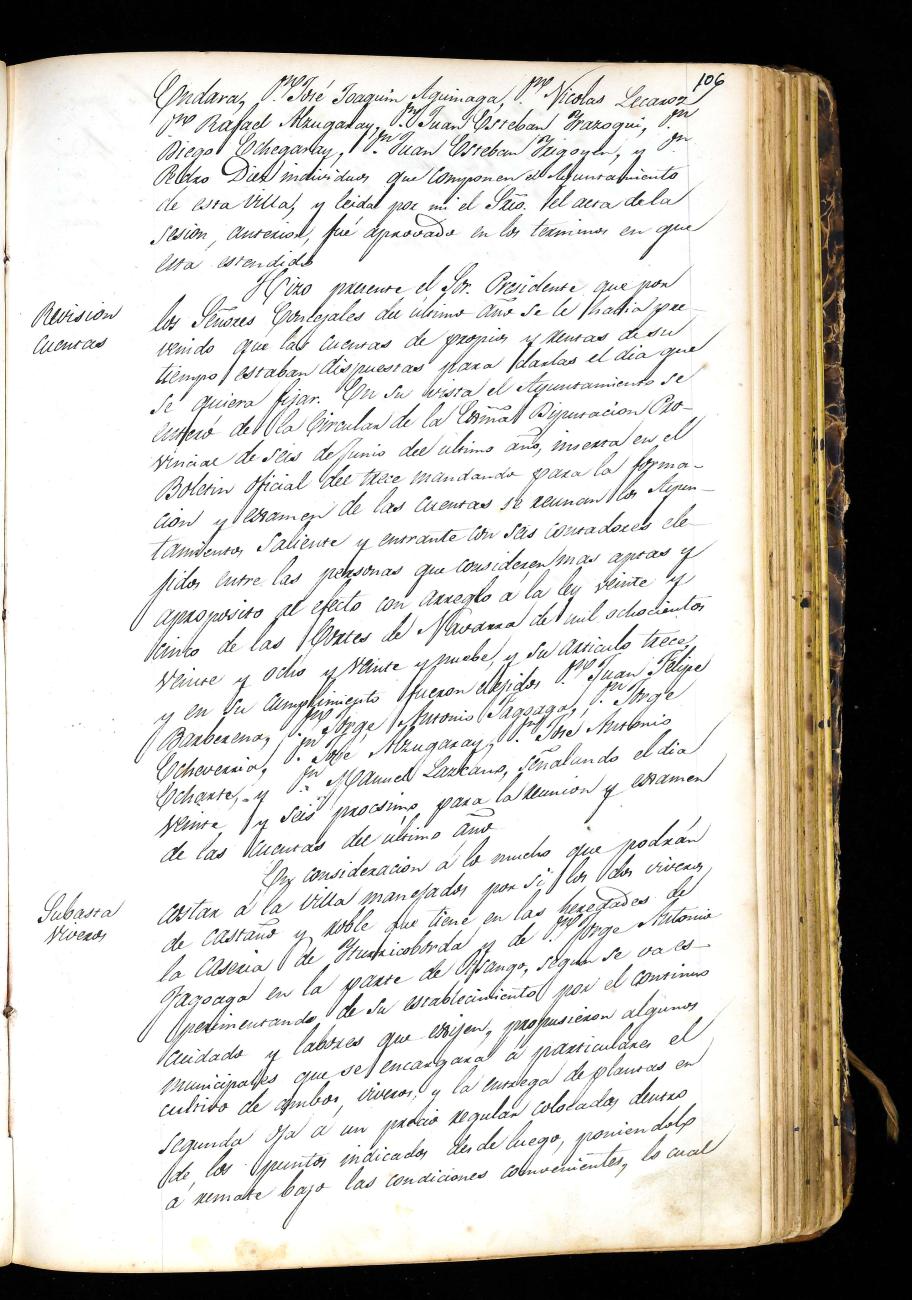 106
Endara, Dn José Joaquin Aguinaga, Dn Nicolas Lecaroz
Dn Rafael Alzugaray, Dn Juan Esteban Irazoqui, Dn
Diego Echegaray, Dn Juan Esteban Irigoyen, y Dn
Pedro Diez individuos que componen el Ayuntamiento
de esta Villa, y leida por mi el Srio. el acta de la
sesion, anterior, fué aprovado en los terminos en que
esta estendido
Revision
cuentas
Hizo presente el Sor. Presidente que por
los Señores Concejales del último año se le havia pre-
venido que las cuentas de propios y rentas de su
tiempo estaban dispuestas para darlas el dia que
se quiera fijar. En su vista el Ayuntamiento se
entero de la Circular de la Exma Diputacion Pro-
vincial de seis de Junio del último año, inserta en el
Boletin oficial del trece mandando para la forma-
cion y examen de las cuentas se reunan los Ayun-
tamientos saliente y entrante con seis contadores ele-
jidos entre las personas que consideren mas aptas y
aproposito al efecto con arreglo á la ley veinte y
cinco de las Cortes de Navarra de mil ochocientos
veinte y ocho y veinte y nuebe, y su articulo trece
y en su cumplimiento fueron elejidos Dn Juan Felipe
Barberena, Dn Jorge Antonio Jagoaga, Dn Jorge
Echeverria, Dn José Alzugaray, Dn José Antonio
Echarte, y Dn Manuel Lazcano, señalando el dia
veinte y seis procsimo para la reunion y examen
de las cuentas del último año
Subasta
Viveros
En consideracion á lo mucho que podrán
costar á la villa manejados por si los dos viveros
de castaño y roble que tiene en las heredades de
la caseria de Iturricoborda y de Dn Jorge Antonio
Jagoaga en la parte de segun se va es-
perimentando de su establecimiento por el continuo
cuidado y labores que exijen, propusieron algunos
municipales que se encargara á particulares el
cultivo de ambos viveros, y la entrega de plantas en
segunda oja á un precio regular colocados dentro
de los puntos indicados desde luego, poniendolo
á remate bajo las condiciones convenientes, lo cual